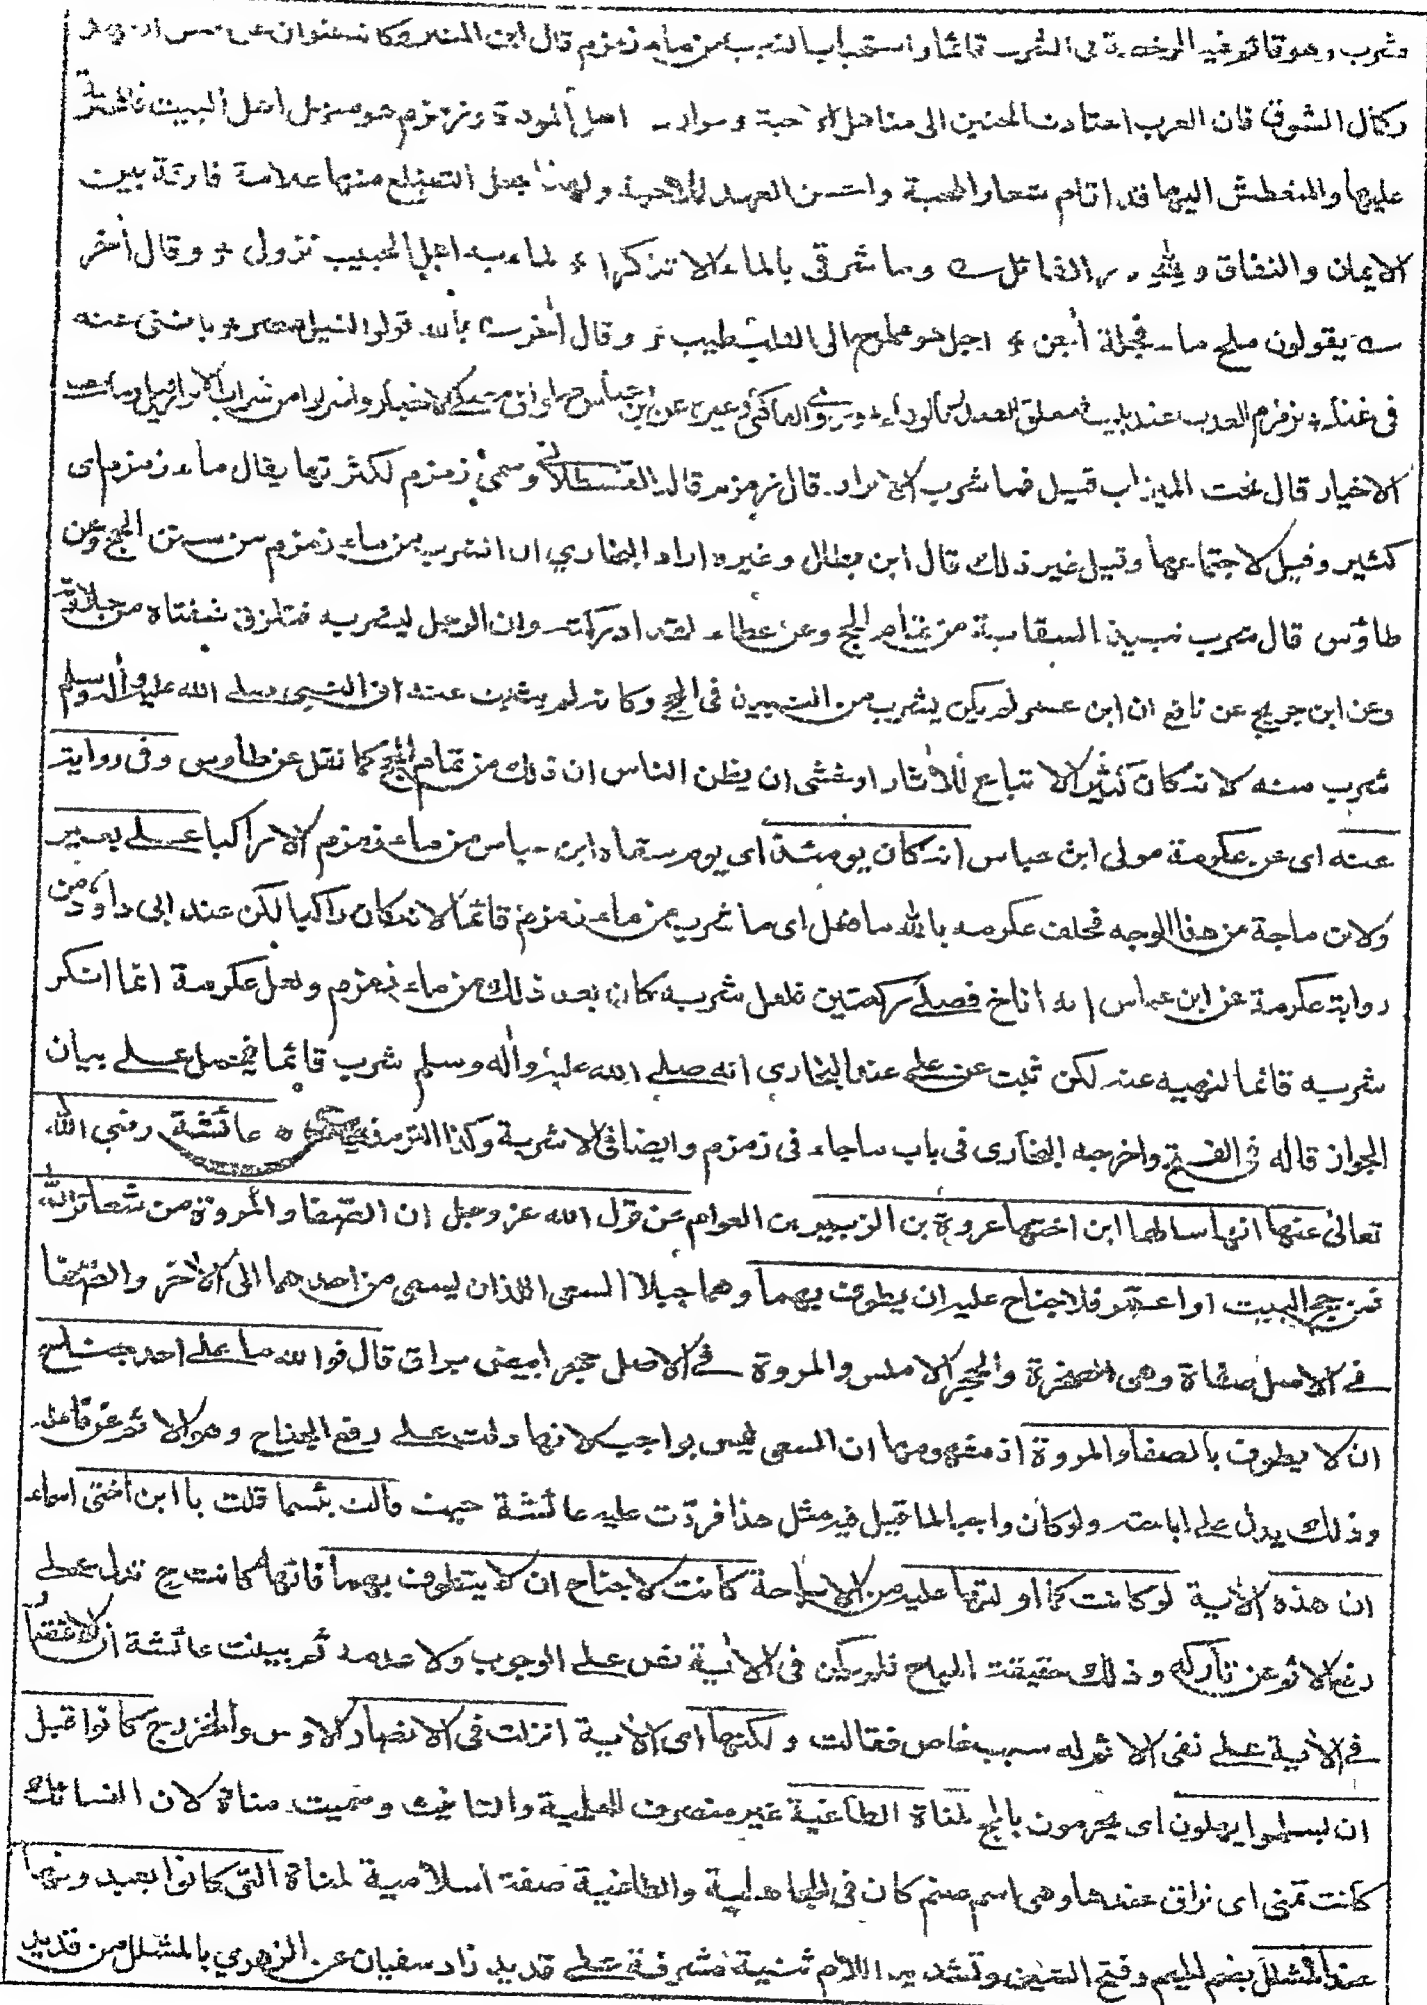 شرب وهو قائم فيه الرخصة فى الشرب قائما واستحباب الشرب من ماء زمزم قال ابن المنير وكانه عنوان عن حسن العهد
وكمال الشوق فان العرب اعتادت الحنين الى مناهل الاحبة وموارد اهل المودة وزمزم هو منزل اهل البيت فالمتحرق
عليها والمتعطش اليها قد اقام شعار المحبة واحسن العهد للاحبة ولهذا جعل التضلع منها علامة فارقة بين
الايمان والنفاق ولله در القائل ؎ وما شرقى بالماء الا تذكرا ؛ لماء به اهل الحبيب نزول ؛ وقال أخر
؎ يقولون ملح ماء فجلة أجن ؛ اجل هو مملوح الى القلب طيب ؛ وقال أخر ؎ بالله قولوا لنيل مصر ؛ باننى عنه
فى غناء ؛ بزمزم العذب عند بيت ؛ معلق الستر بالوفاء ؛ وروى الفاكهى وغيره عن ابن عباس صلوا فى مصلى الاخيار واشربوا من شراب الابرار قيل وما مصلى
الاخيار قال تحت الميزاب قيل فما شراب الابرار قال زمزم قال القسطلانى وسمى زمزم لكثرتها يقال ماء زمزم اى
كثير وقيل لاجتماعها وقيل غير ذلك قال ابن بطال وغيره اراد البخاري ان الشرب من ماء زمزم من سنن الحج وعن
طاؤس قال شرب نبيذ السقاية من تمام الحج وعن عطاء لقد ادركته وان الرجل ليشربه فتلزق شفتاه من حلاوته
وعن ابن جريج عن نافع ان ابن عمر لم يكن يشرب من النبيذ فى الحج وكانه لم يثبت عنده ان النبى صلى الله عليه وأله وسلم
شرب منه لانه كان كثير الاتباع للأثار او خشى ان يظن الناس ان ذلك من تمام الحج كما نقل عن طاوس وفى رواية
عنه اى عن عكرمة مولى ابن عباس انه كان يومئذ اى يوم سقاه ابن عباس من ماء زمزم الا راكبا على بعير
ولابن ماجة من هذا الوجه فحلف عكرمة بالله ما فعل اى ما شرب من ماء زمزم قائما لانه كان راكبا لكن عند ابى داؤد من
رواية عكرمة عن ابن عباس انه أناخ فصلى ركعتين فلعل شربه كان بعد ذلك من ماء زمزم ولعل عكرمة انما انكر
شربه قائما لنهيه عنه لكن ثبت عن على عند البخارى انه صلى الله عليه وأله وسلم شرب قائما فيحمل على بيان
الجواز قاله فى الفتح واخرجه البخارى فى باب ماجاء فى زمزم وايضا فى الاشربة وكذا الترمذى عائشة رضي الله
تعالى عنها انها سالها ابن اختها عروة بن الزبير بن العوام عن قول الله عز وجل ان الصفا والمروة من شعائر الله
فمن حج البيت او اعتمر فلا جناح عليه ان يطوف بهما وهما جبلا السعى اللذان يسعى من احدهما الى الأخر والصفا
فى الاصل صفاة وهى الصخرة والحجر الاملس والمروة فى الاصل حجر ابيض براق قال فوالله ما على احد جناح
ان لا يطوف بالصفا والمروة اذ مفهومها ان السعى ليس بواجب لانها دلت على رفع الجناح وهو الاثم عن فاعله
وذلك يدل على اباحته ولو كان واجبا لما قيل فيه مثل هذا فردت عليه عائشة حيث قالت بئسما قلت يا ابن اختى اسماء
ان هذه الأية لو كانت كما اولتها عليه من الاباحة كانت لا جناح ان لا يتطوف بهما فانها كانت ح تدل على
رفع الاثم عن تاركه وذلك حقيقة المباح فلم يكن فى الأية نص على الوجوب ولا عدمه ثم بينت عائشة ان الاقتصار
فى الأية على نفى الاثم له سبب خاص فقالت ولكنها اى الأية انزلت فى الانصار الاوس والخزرج كانوا قبل
ان يسلموا يهلون اى يحرمون بالحج لمناة الطاغية غير منصرف للعلمية والتانيث وسميت مناة لان النسائك
كانت تمنى اى تراق عندها وهى اسم صنم كان فى الجاهلية والطاغية صفة اسلامية لمناة التى كانوا يعبدونها
عند المشلل بضم الميم وفتح الشين وتشديد اللام ثنية مشرفة على قديد زاد سفيان عن الزهري بالمشلل من قديد